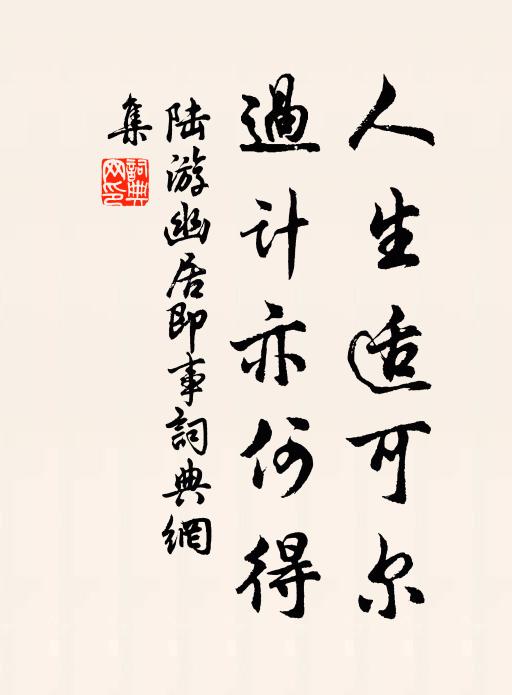 人生适可尔
過计亦何得
陆游幽居即事詞典網
集
詞典网印